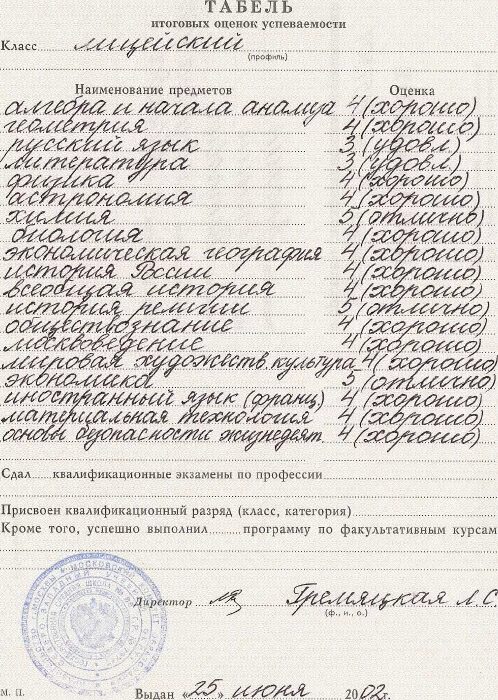 ТАБЕЛЬ
итоговых оценок успеваемости
Класс лицейский
(профиль)
Наименование предметов Оценка
алгебра и начала анализа 4 (хорошо)
геометрия 4 (хорошо)
русский язык 3 (удовл)
литература 3 (удовл)
физика 4 (хорошо)
астрономия 4 (хорошо)
химия 5 (отлично)
биология 4 (хорошо)
экономическая география 4 (хорошо)
история России 4 (хорошо)
всеобщая история 4 (хорошо)
история религии 5 (отлично)
обществознание 4 (хорошо)
москвоведение 4 (хорошо)
мировая художеств. культура 4 (хорошо)
экономика 5 (отлично)
иностранный язык (франц) 4 (хорошо)
материальная технология 4 (хорошо)
основы безопасности жизнедеят. 4 (хорошо)
Сдал квалификационные экзамены по профессии
Присвоен квалификационный разряд (класс, категория)
Кроме того, успешно выполнил программу по факультативным курсам
Директор Гремяцкая Л.С.
(ф., и., о.)
М. П. Выдан «25» июня 2002г.